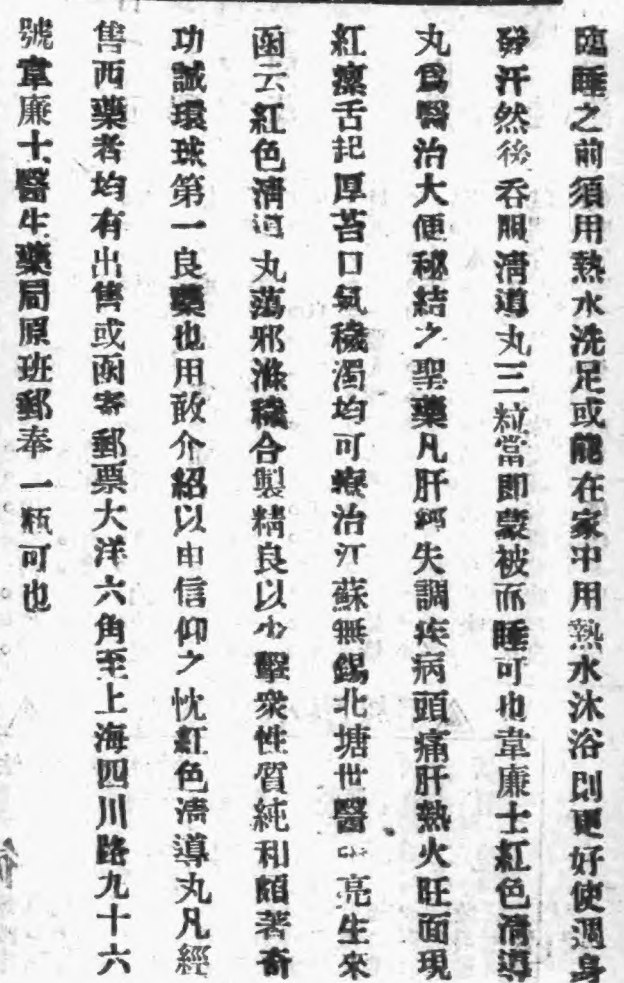 臨睡之前須用熱水洗足或能在家中用熱水沐浴則更好使週身
發汗然後吞服清導丸三粒當即蒙被而睡可也韋廉士紅色清導
丸爲醫治大便秘結之聖藥凡肝經失調疾病頭痛肝熱火旺面現
紅瘰舌起厚苔口氣穢濁均可療治江蘇無錫北塘世醫亮生來
函云紅色清導丸蕩邪滌穢合製精良以少擊衆性質純和頗著奇
功誠環球第一良藥也用敢介紹以申信仰之忱紅色清導丸凡經
售西藥者均有出售或函寄郵票大洋六角至上海四川路九十六
號韋廉士醫生藥局原班郵奉一瓶可也